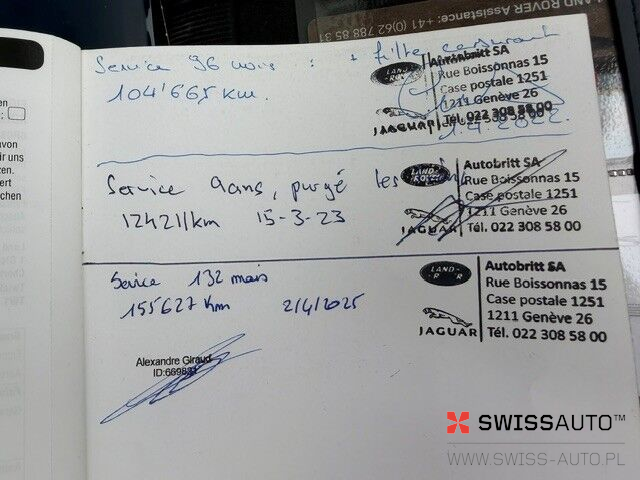 LAND ROVER Assistance: +41 (0)62 788 85 31
Service 96 mois : + filtre carburant
104'665 km.
LAND-ROVER
JAGUAR
Autobritt SA
Rue Boissonnas 15
Case postale 1251
1211 Genève 26
Tél. 022 308 58 00
1.4.2022
Service 9ans, purgé les
124211km 15-3-23
LAND-ROVER
JAGUAR
Autobritt SA
Rue Boissonnas 15
Case postale 1251
1211 Genève 26
Tél. 022 308 58 00
Service 132 mois
155627 km 2/4/2025
LAND-
JAGUAR
Autobritt SA
Rue Boissonnas 15
Case postale 1251
1211 Genève 26
Tél. 022 308 58 00
Alexandre Giraud
SWISSAUTO™
WWW.SWISS-AUTO.PL